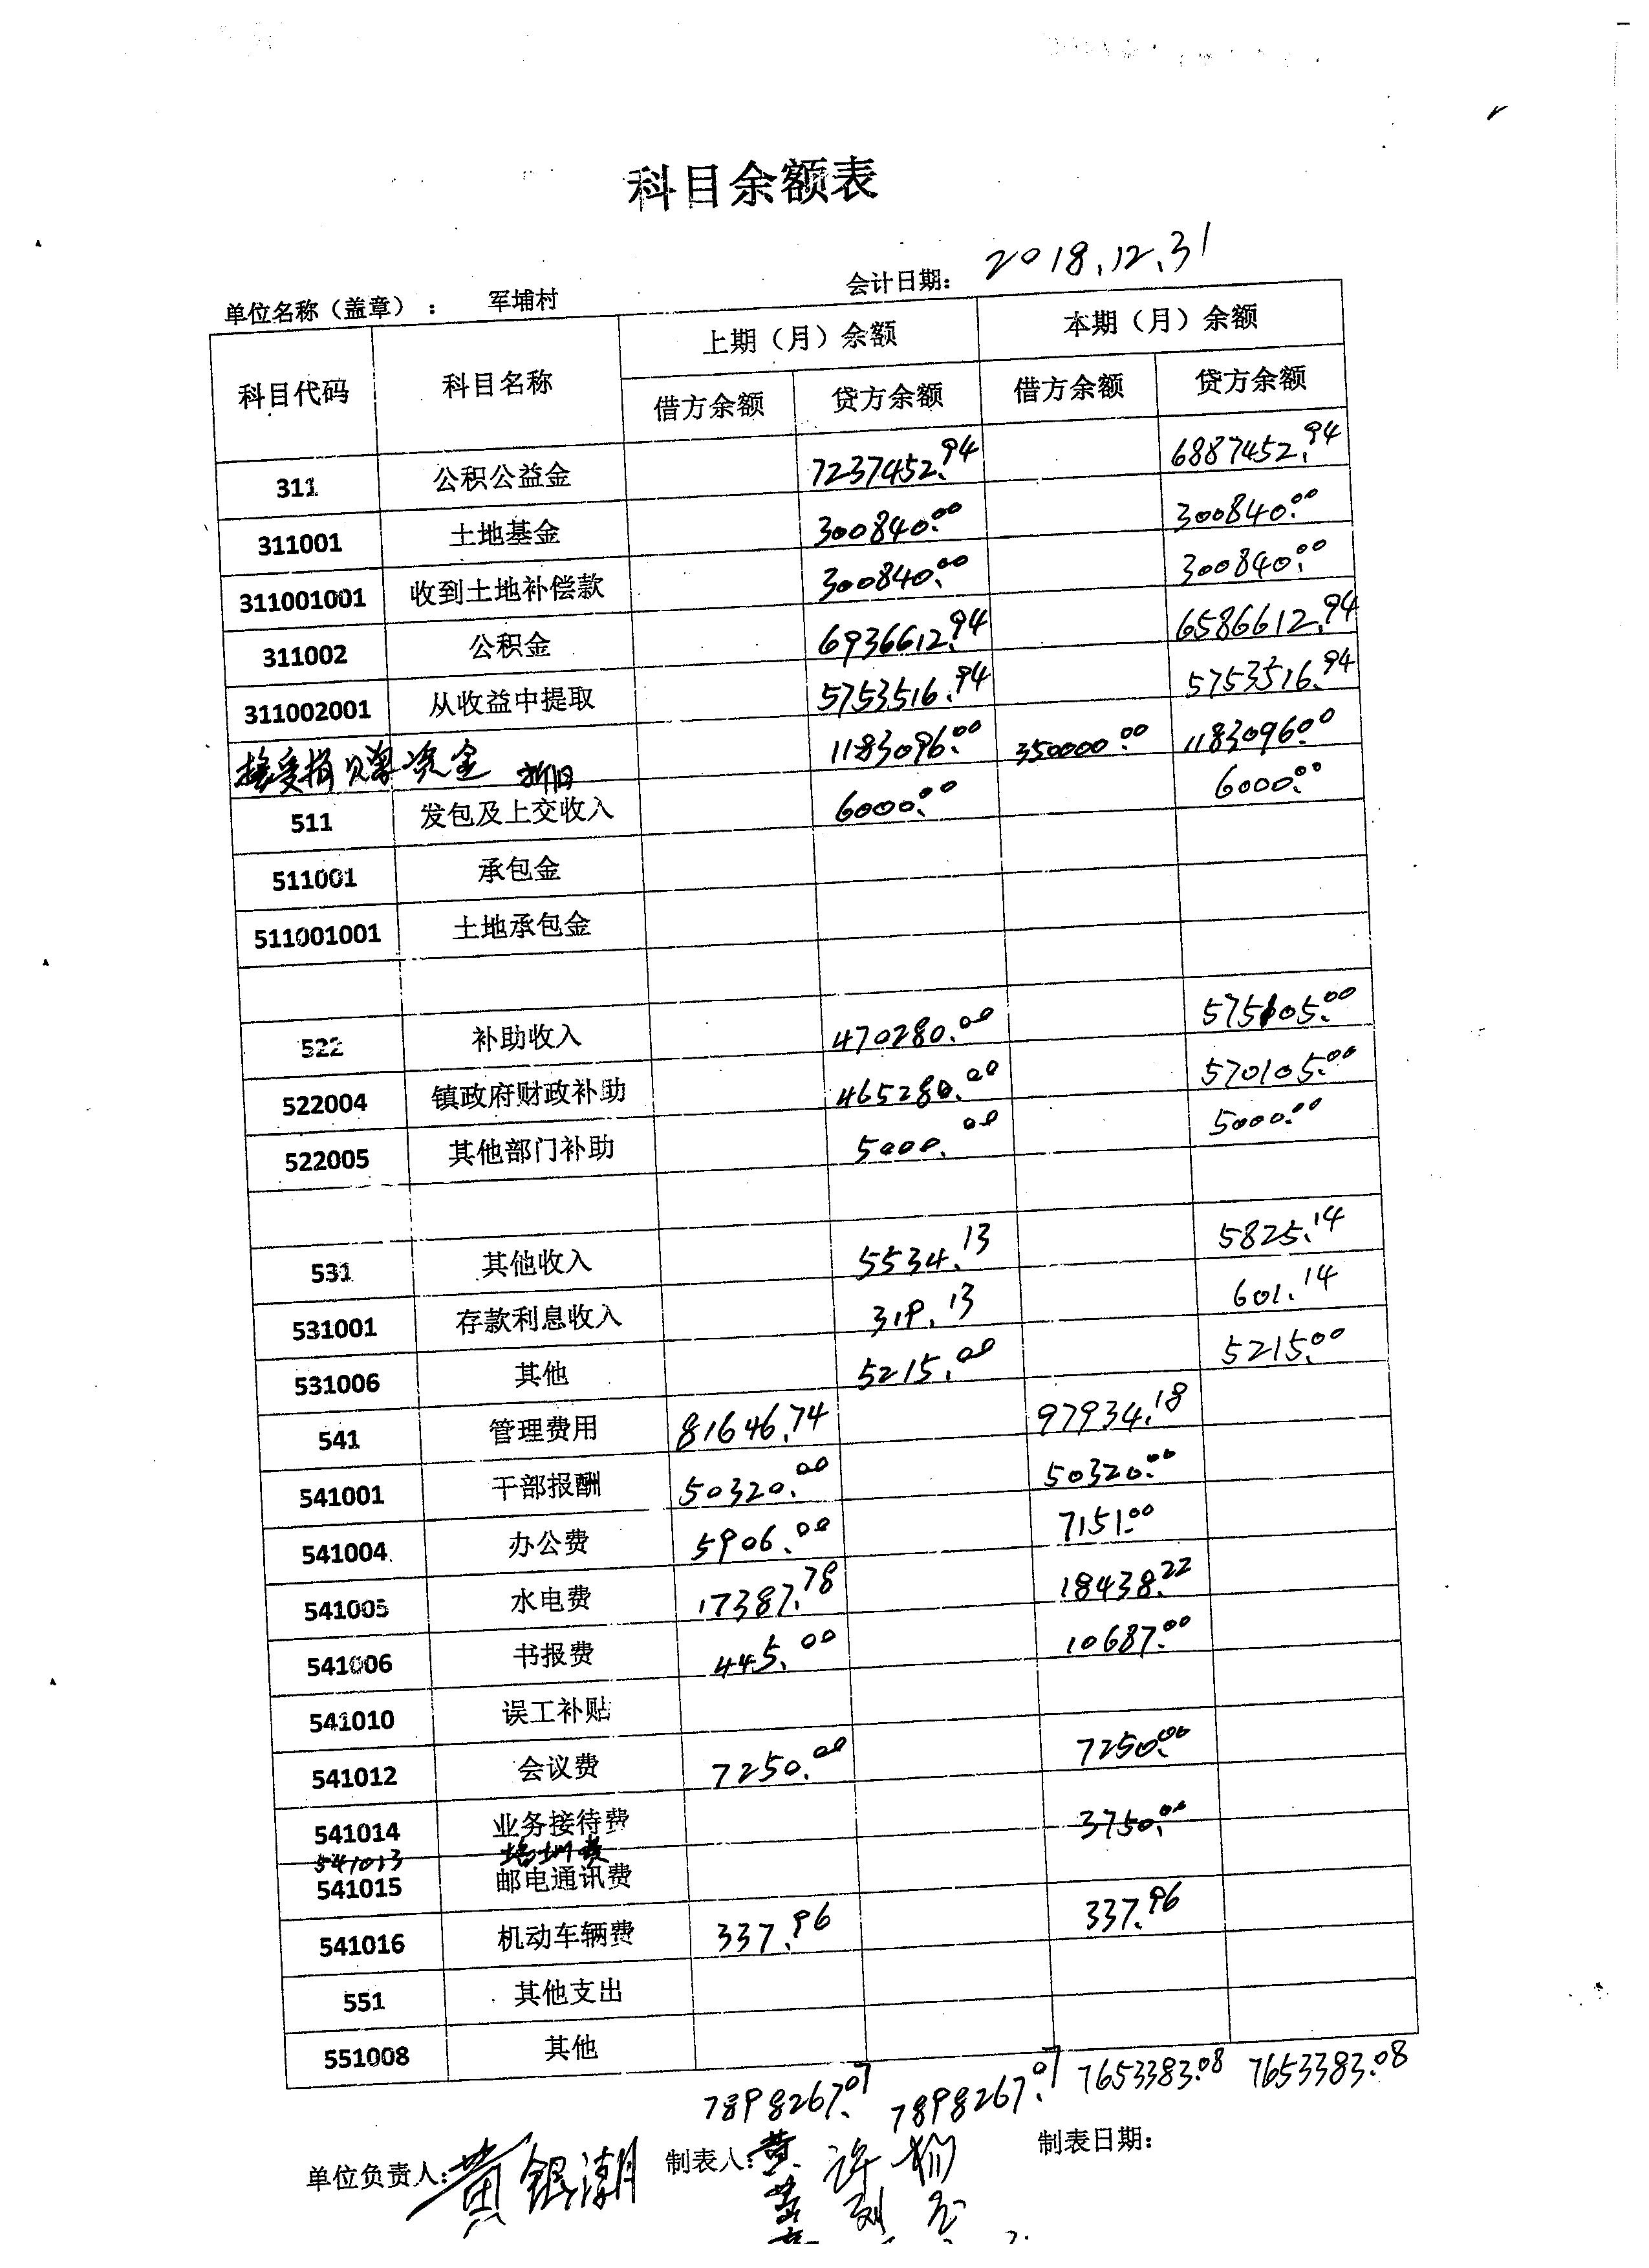 科目余额表
单位名称（盖章）： 军埔村 会计日期： 2018.12.31
科目代码 科目名称 上期（月）余额 本期（月）余额
借方余额 贷方余额 借方余额 贷方余额
311 公积公益金 7237452.94 6887452.94
311001 土地基金 300840.00 300840.00
311001001 收到土地补偿款 300840.00 300840.00
311002 公积金 6936612.94 6586612.94
311002001 从收益中提取 5753516.94 5753516.94
接受捐赠资金 折旧 1183096.00 350000.00 1183096.00
511 发包及上交收入 6000.00 6000.00
511001 承包金
511001001 土地承包金
522 补助收入 470280.00 575105.00
522004 镇政府财政补助 465280.00 570105.00
522005 其他部门补助 5000.00 5000.00
531 其他收入 5534.13 5825.14
531001 存款利息收入 319.13 601.14
531006 其他 5215.00 5215.00
541 管理费用 81646.74 97934.18
541001 干部报酬 50320.00 50320.00
541004 办公费 5906.00 7151.00
541005 水电费 17387.78 18438.22
541006 书报费 445.00 10687.00
541010 误工补贴
541012 会议费 7250.00 7250.00
541014 业务接待费 3750.00
541013 培训费
541015 邮电通讯费
541016 机动车辆费 337.96 337.96
551 其他支出
551008 其他
7898267.07 7898267.07 7653383.08 7653383.08
单位负责人：黄银潮 制表人：黄许 制表日期：